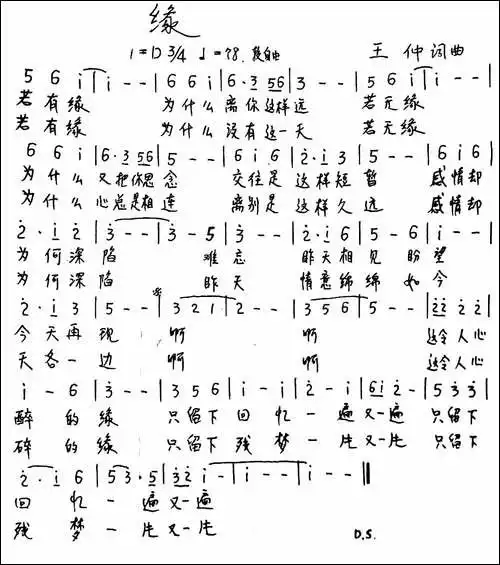 缘
1=D 3/4 ♩=78. 稍自由 王 仲 词曲
5 6 i | i - - | 6 6 i | 6·3 5 6 | 3 - - | 5 6 i | i - - |
若 有 缘 为 什 么 离 你 这样 远 若 无 缘
若 有 缘 为 什 么 没 有 这一 天 若 无 缘
6 6 i | 6·3 5 6 | 5 - - | 6 i 6 | 2·i 3 | 5 - - | 6 i 6 |
为 什 么 又 把你 思 念 交 往 是 这 样 短 暂 感 情 却
为 什 么 心 总是 相 连 离 别 是 这 样 久 远 感 情 却
2·i 2 | 3 - - | 3 - 5 | 3 - - | 2·i 6 | 5 - 6 | i - - |
为 何 深 陷 难 忘 昨 天 相 见 盼 望
为 何 深 陷 昨 天 情 意 绵 绵 如 今
2·i 3 | 5 - - | 3 2 1 | 2 - - | 3 5 6 | 5 - - | 2 2 2 2 |
今 天 再 现 啊 啊 这令 人 心
天 各 一 边 啊 啊 这令 人 心
i - 6 | 3 - - | 3 5 6 | i - i | 2 - i | 6 i 2 - | 5 3 3 |
醉 的 缘 只 留 下 回 忆 一 遍 又 一 遍 只 留 下
碎 的 缘 只 留 下 残 梦 一 片 又 一 片 只 留 下
2·i 6 | 5 3·5 | 3 2 i - | i - - | i - - ‖
回 忆 一 遍 又 一 遍
残 梦 一 片 又 一 片 D.S.